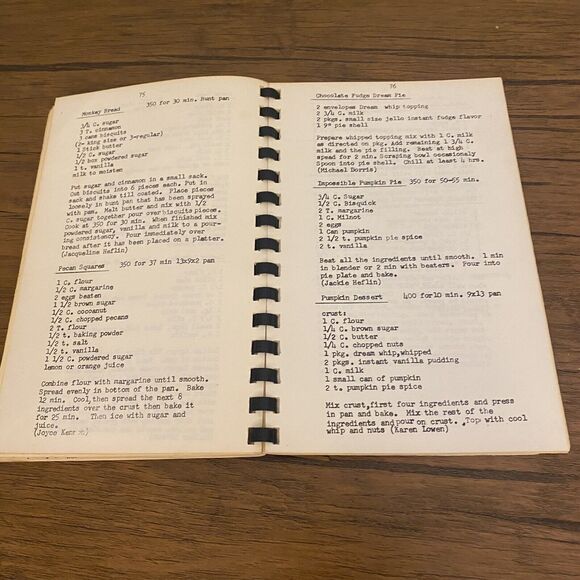 75
Monkey Bread 350 for 30 min. Bunt pan
3/4 C. sugar
3 T. cinnamon
3 cans biscuits
(2- king size or 3-regular)
1 Stick butter
1/2 C. sugar
1/2 box powdered sugar
1 t. vanilla
milk to moisten
Put sugar and cinnamon in a small sack.
Cut biscuits into 6 pieces each. Put in
sack and shake till coated. Place pieces
loosely in bunt pan that has been sprayed
with pam. Melt butter and mix with 1/2
C. sugar together pour over biscuits pieces.
Cook at 350 for 30 min. When finished mix
powdered sugar, vanilla and milk to a pour-
ing consistency. Pour immediately over
bread after it has been placed on a platter.
(Jacqueline Heflin)
Pecan Squares 350 for 37 min 13x9x2 pan
1 C. flour
1/2 C. margarine
2 eggs beaten
1 1/2 brown sugar
1/2 C. cocoanut
1/2 C. chopped pecans
2 T. flour
1/2 t. baking powder
1/2 t. salt
1/2 t. vanilla
1 1/2 C. powdered sugar
lemon or orange juice
Combine flour with margarine until smooth.
Spread evenly in bottom of the pan. Bake
12 min. Cool,then spread the next 8
ingredients over the crust then bake it
for 25 min. Then ice with sugar and
juice.
(Joyce
76
Chocolate Fudge Dream Pie
2 envelopes Dream whip topping
2 3/4 C. milk
2 pkgs. small size jello instant fudge flavor
1 9" pie shell
Prepare whipped topping mix with 1 C. milk
as directed on pkg. Add remaining 1 3/4 C.
milk and the pie filling. Beat at high
spead for 2 min. Scraping bowl occasionaly
Spoon into pie shell. Chill at least 4 hrs.
(Michael Dorris)
Impossible Pumpkin Pie 350 for 50-55 min.
3/4 C. Sugar
1/2 C. Bisquick
2 T. margarine
1 C. Milnot
2 eggs
1 Can pumpkin
2 1/2 t. pumpkin pie spice
2 t. vanilla
Beat all the ingredients until smooth. 1 min
in blender or 2 min with beaters. Pour into
pie plate and bake.
(Jackie Heflin)
Pumpkin Dessert 400 for 10 min. 9x13 pan
crust:
1 C. flour
1/4 C. brown sugar
1/2 C. butter
1/4 C. chopped nuts
1 pkg. dream whip,whipped
2 pkgs. instant vanilla pudding
1 C. milk
1 small can of pumpkin
2 t. pumpkin pie spice
Mix crust,first four ingredients and press
in pan and bake. Mix the rest of the
ingredients and pour on crust. Top with cool
whip and nuts (Karen Lowen)